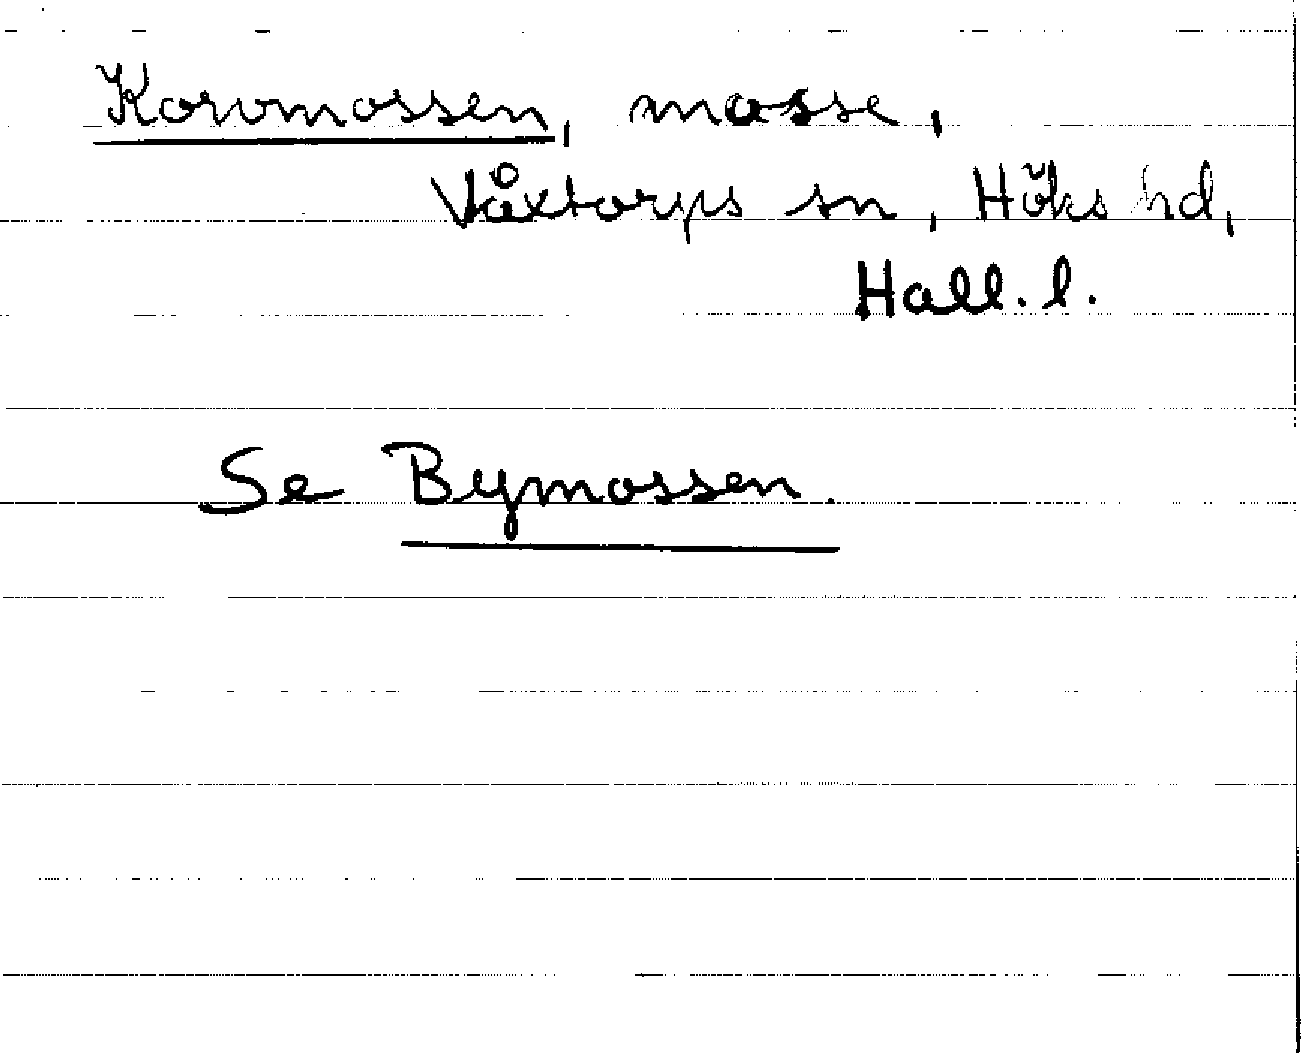 Korvmossen, mosse,
Våxtorps sn, Höks hd,
Hall. l.
Se Bymossen.